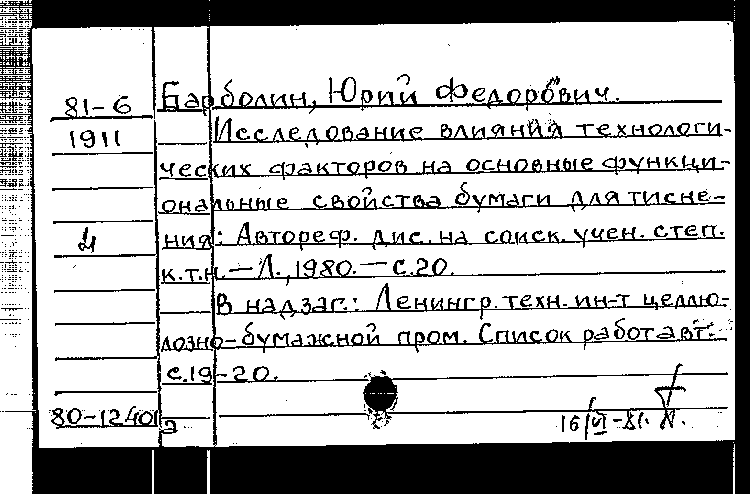 81-6 Барболин, Юрий Федорович.
1911 Исследование влияния технологи-
ческих факторов на основные функци-
ональные свойства бумаги для тисне-
ния: Автореф. дис. на соиск. учен. степ.
к.т.н. — Л., 1980. — с.20.
В надзаг.: Ленингр. техн. ин-т целлю-
лозно-бумажной пром. Список работ авт.:
с.19-20.
80-12401а
16/VI-81.